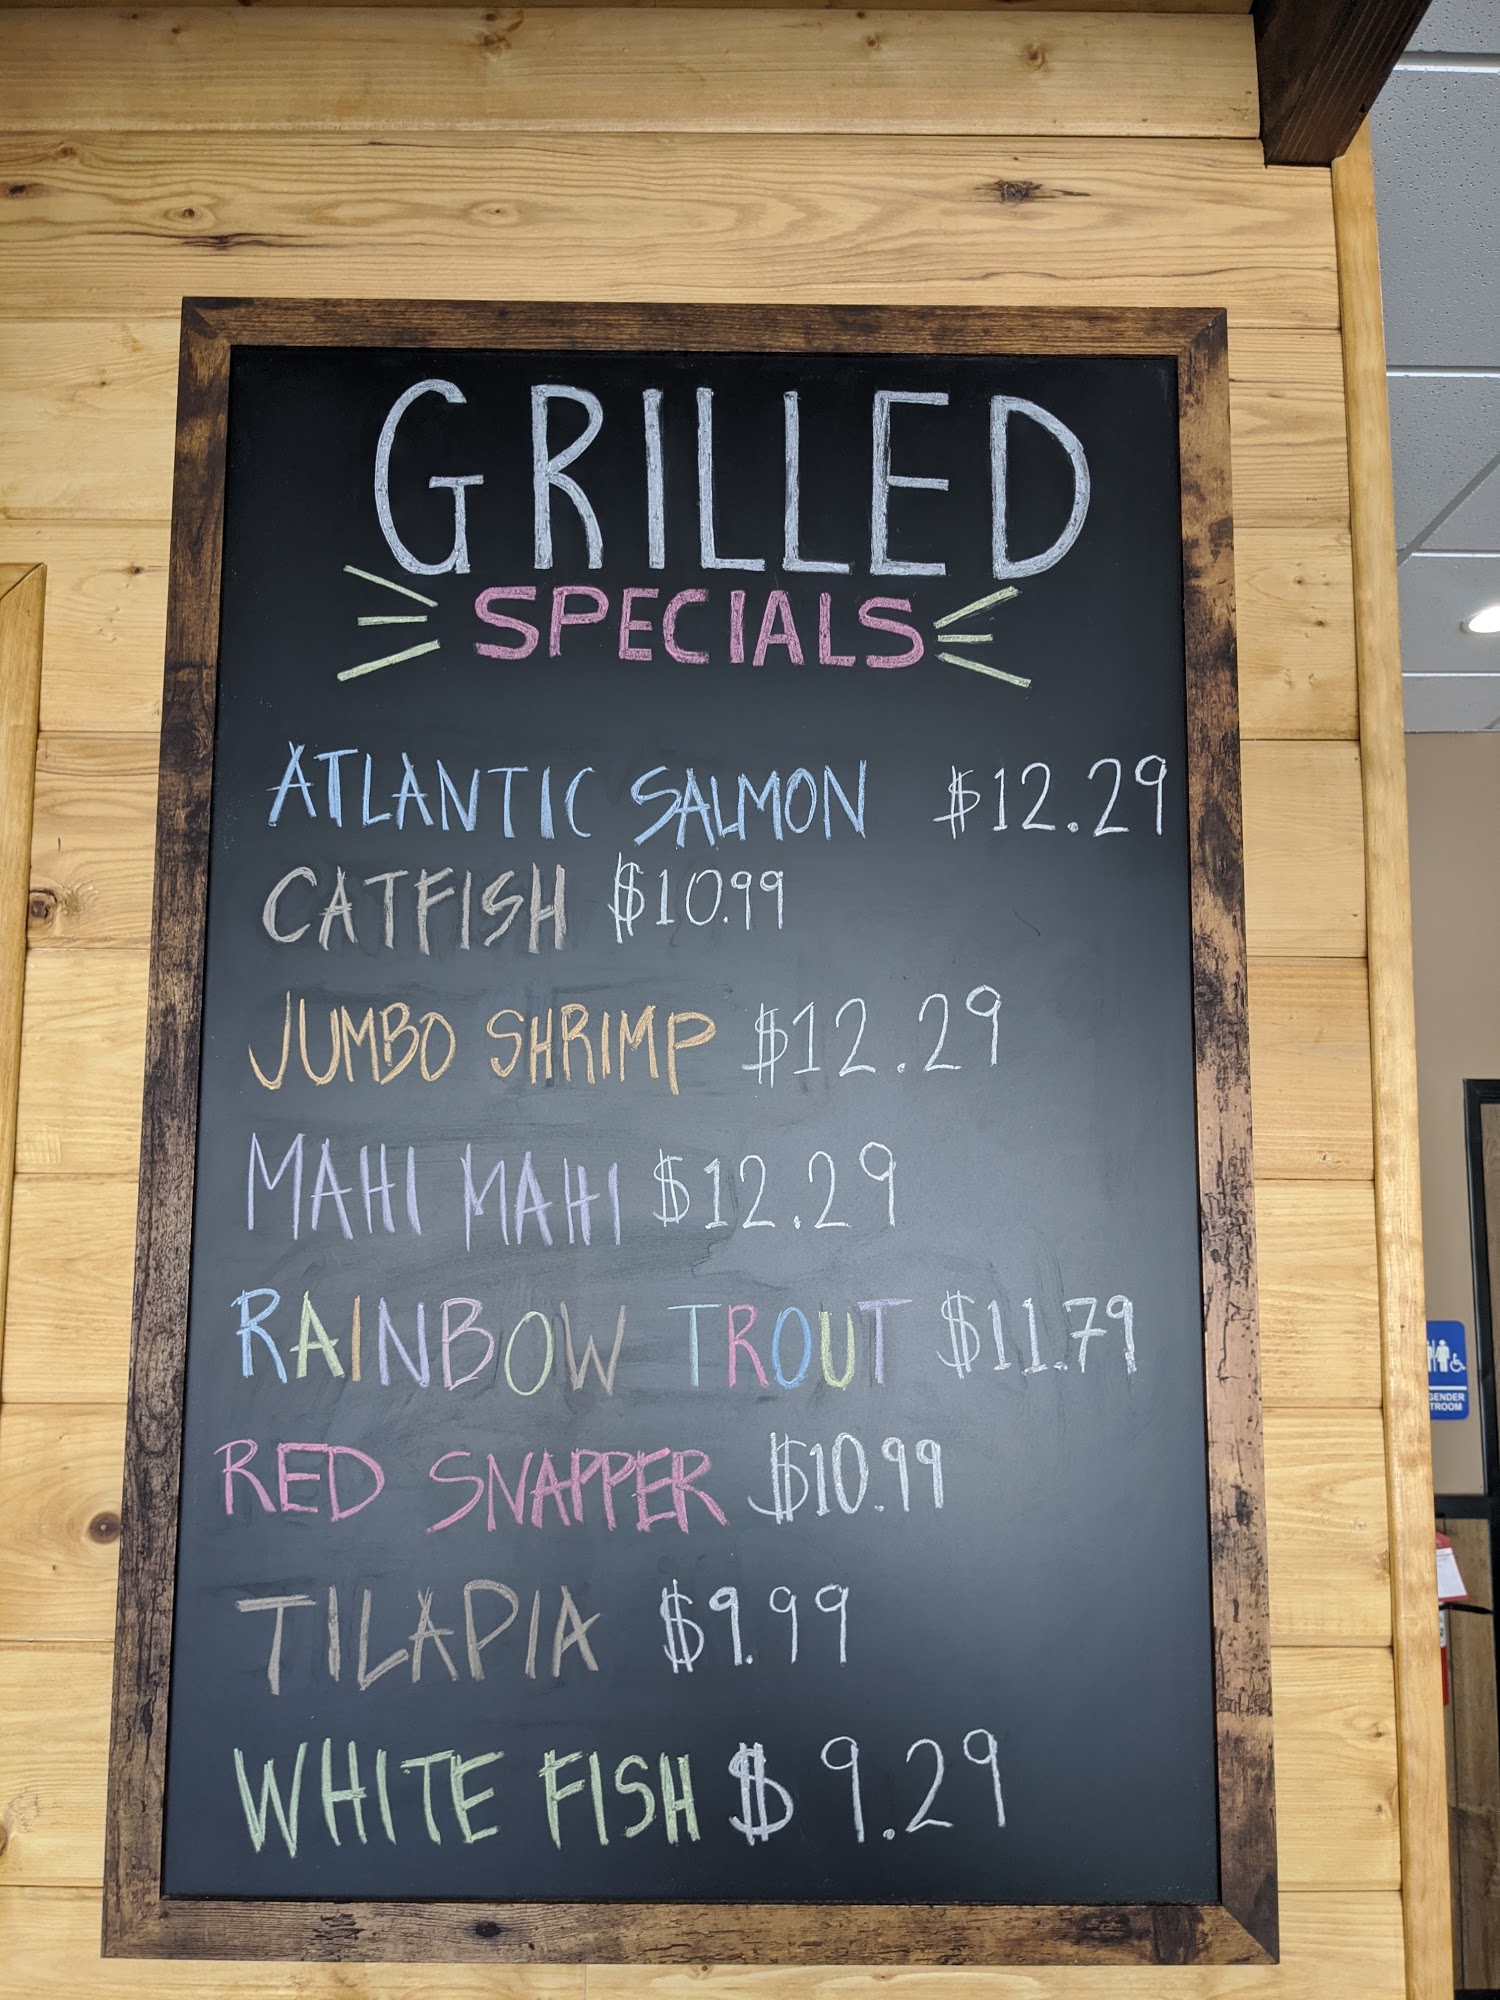 GRILLED
SPECIALS
ATLANTIC SALMON $12.29
CATFISH $10.99
JUMBO SHRIMP $12.29
MAHI MAHI $12.29
RAINBOW TROUT $11.79
RED SNAPPER $10.99
TILAPIA $9.99
WHITE FISH $9.29